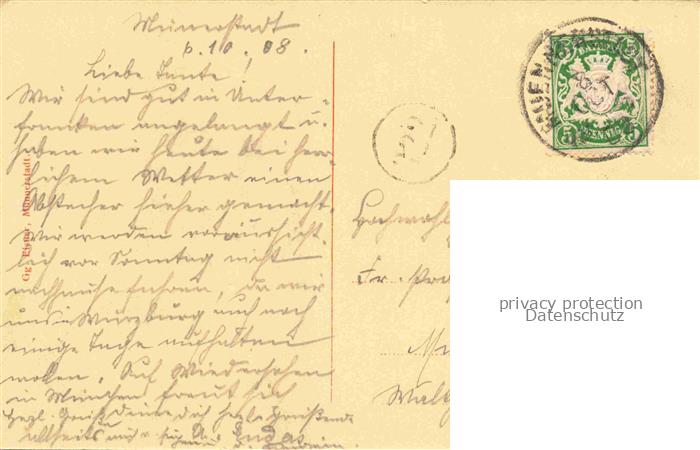 Münnerstadt
6.10.08.
Liebe Tante!
Wir sind gut in Unter-
franken angelangt u.
haben wir heute bei herr-
lichem Wetter einen
Abstecher hieher gemacht.
Wir werden voraussicht-
lich vor Sonntag nicht
nachhause fahren, da wir
uns in Würzburg auch noch
einige Tage aufhalten
wollen. Auf Wiedersehen
in München freut sich
herzl. Grüße
Gg. Elsner, Münnerstadt.
BAYERN
5 5
PFENNIG
Hochwohl
Fr.
privacy protection
Datenschutz